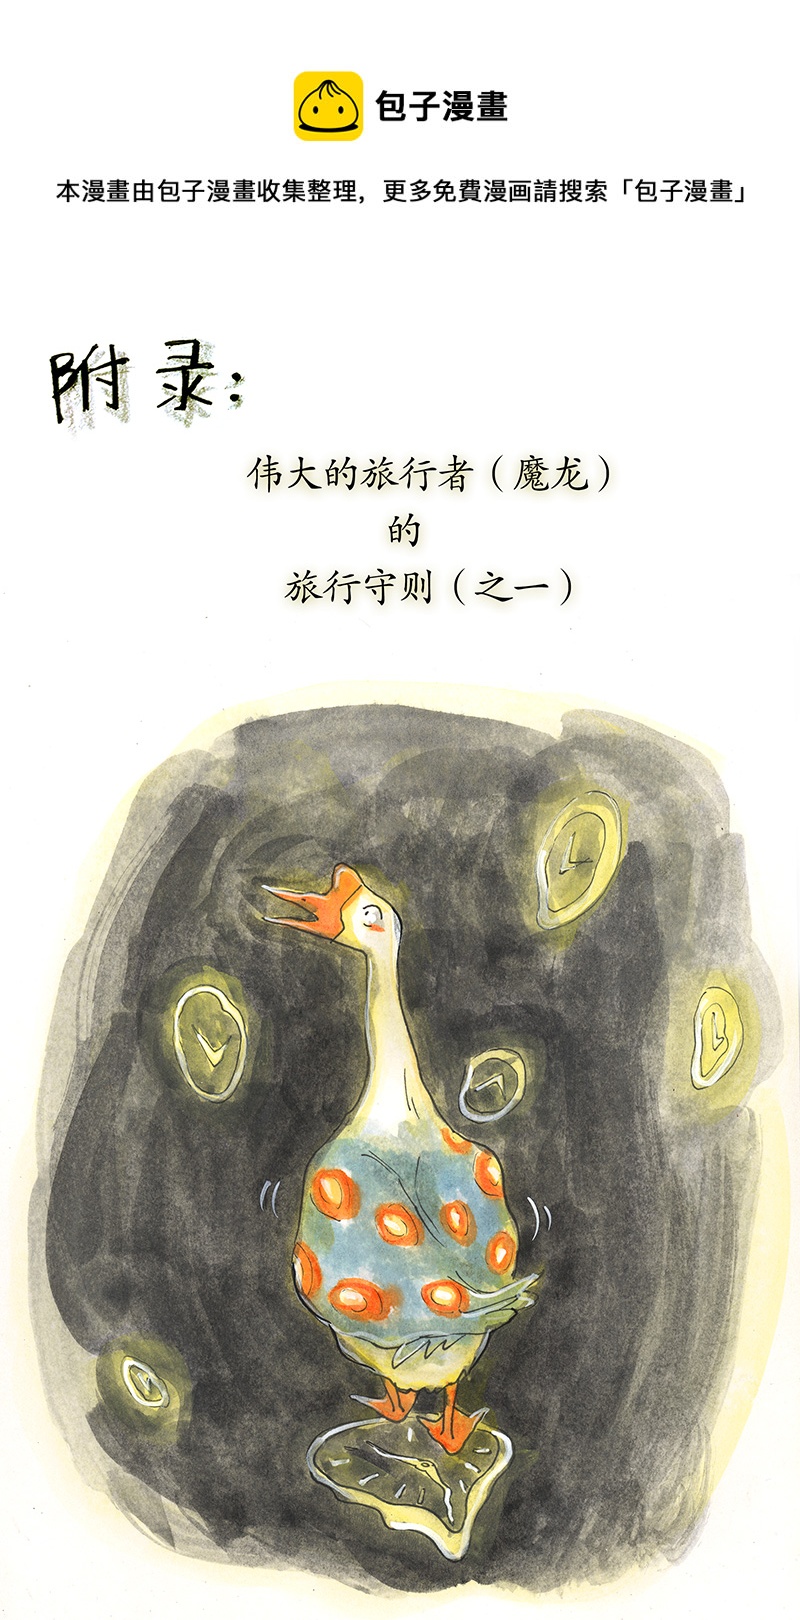 包子漫畫
本漫畫由包子漫畫收集整理，更多免費漫画請搜索「包子漫畫」
附录：
伟大的旅行者（魔龙）
的
旅行守则（之一）